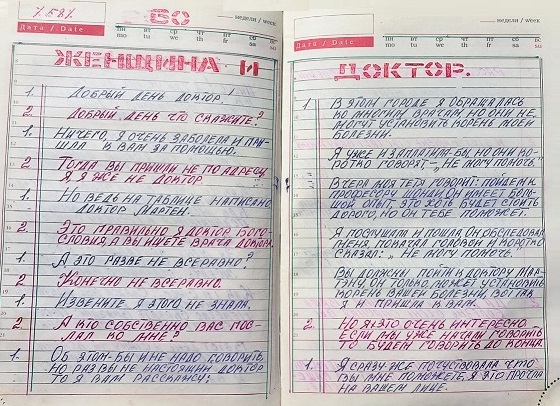 7.581.
60
недели / week
Дата / Date
пн вт ср чт пт сб вс
mo tu we th fr sa su
ЖЕНЩИНА И
1. ДОБРЫЙ ДЕНЬ ДОКТОР!
2. ДОБРЫЙ ДЕНЬ ЧТО СКАЖИТЕ?
1. НИЧЕГО, Я ОЧЕНЬ ЗАБОЛЕЛА И ПРИ-
ШЛА К ВАМ ЗА ПОМОЩЬЮ.
2. ТОГДА ВЫ ПРИШЛИ НЕ ПО АДРЕСУ,
Я Я ЖЕ НЕ ДОКТОР.
1. НО ВЕДЬ НА ТАБЛИЦЕ НАПИСАНО
ДОКТОР МАРТЕН.
2. ЭТО ПРАВИЛЬНО Я ДОКТОР БОГО-
СЛОВИЯ, А ВЫ ИЩЕТЕ ВРАЧА ДОКТОРА
1. А ЭТО РАЗВЕ НЕ ВСЕРАВНО?
2. КОНЕЧНО НЕ ВСЕРАВНО.
1. ИЗВЕНИТЕ Я ЭТОГО НЕ ЗНАЛА.
2. А КТО СОБСТВЕННО ВАС ПОС-
ЛАЛ КО МНЕ?
1. ОБ ЭТОМ-БЫ И НЕ НАДО ГОВОРИТЬ,
НО РАЗ ВЫ НЕ НАСТОЯЩИЙ ДОКТОР
ТО Я ВАМ РАССКАЖУ:
недели / week
Дата / Date
пн вт ср чт пт сб вс
mo tu we th fr sa su
ДОКТОР.
1. В ЭТОМ ГОРОДЕ Я ОБРАЩАЛАСЬ
КО МНОГИМ ВРАЧАМ НО ОНИ НЕ
МОГУТ УСТАНОВИТЬ КОРЕНЬ МОЕЙ
БОЛЕЗНИ.
Я УЖЕ И ЗАПЛАТИЛА-БЫ, НО ОНИ КО-
РОТКО ГОВОРЯТ-„НЕ МОГУ ПОМОЧЬ"
ВЧЕРА МОЯ ТЕТЯ ГОВОРИТ: ПОЙДЕМ К
ПРОФЕССОРУ ДОНДИ ОН ИМЕЕТ БОЛЬ-
ШОЙ ОПЫТ, ЭТО ХОТЯ БУДЕТ СТОИТЬ
ДОРОГО, НО ОН ТЕБЕ ПОМОЖЕТ.
Я ПОСЛУШАЛА И ПОШЛА, ОН ОБСЛЕДОВАЛ
МЕНЯ, ПОКАЧАЛ ГОЛОВОЙ И КОРОТКО
СКАЗАЛ: „НЕ МОГУ ПОМОЧЬ.
ВЫ ДОЛЖНЫ ПОЙТИ К ДОКТОРУ МАР-
ТЭНУ, ОН ТОЛЬКО, МОЖЕТ УСТАНОВИТЬ
КОРЕНЬ ВАШЕЙ БОЛЕЗНИ, ВОТ ТАК
Я И ПРИШЛА К ВАМ.
2. НО Я-ЭТО ОЧЕНЬ ИНТЕРЕСНО
ЕСЛИ МЫ УЖЕ НАЧАЛИ ГОВОРИТЬ
ТО БУДЕМ ГОВОРИТЬ ДО КОНЦА.
1. Я СРАЗУ ЖЕ ПОЧУСТВОВАЛА ЧТО
ВЫ МНЕ ПОМОЖЕТЕ, Я ЭТО ПРОЧЛА
НА ВАШЕМ ЛИЦЕ.